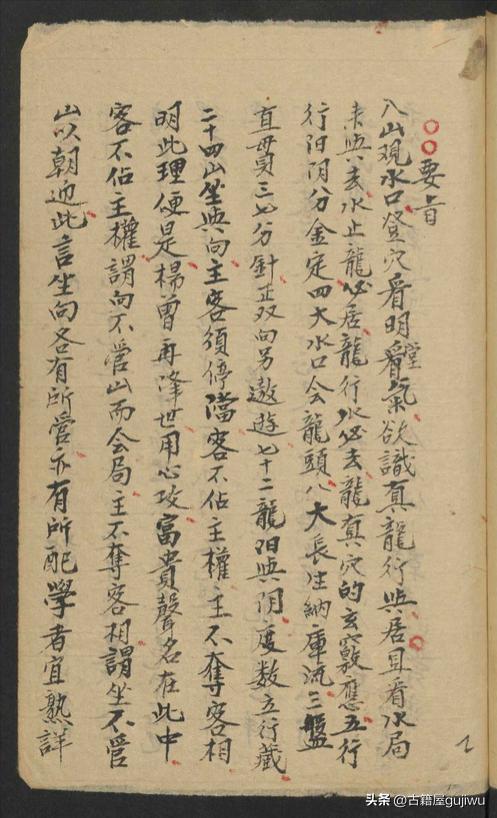 ○○要旨
入山观水口登穴看明堂看氣欲識真龍行與居且看水局
未與去水止龍必居龍行水必去龍真穴的玄竅應五行
行阳阴分金定四大水口会龍頭八大長生納庫流三盤
直毋貟三七分針正双向另遨遊七十二龍阳與阴度数立行藏
二十四山坐與向主客須停當客不佔主權主不奪客相
明此理便是楊曾再降世用心攻富貴聲名在此中
客不佔主權謂向不管山而会局主不奪客相謂坐不管
山以朝迎此言坐向各有所管亦有所配學者宜熟詳
头条@古籍屋gujiwu